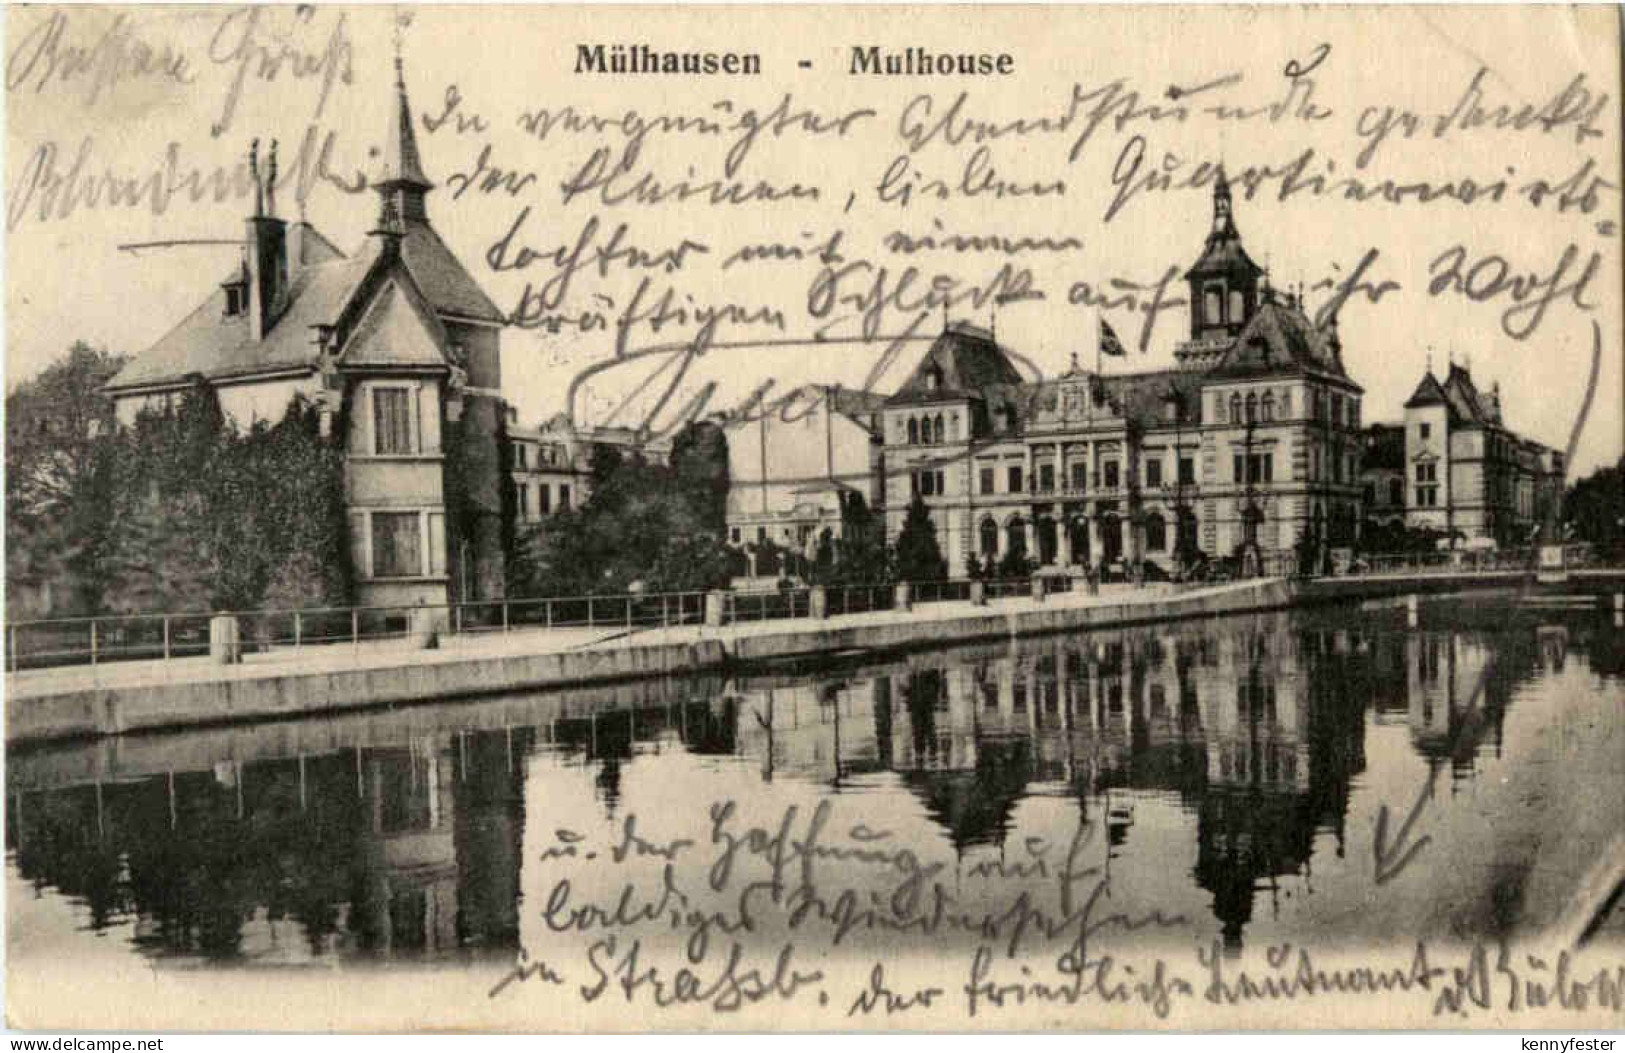 Mülhausen - Mulhouse
Besten Gruß
In vergnügter Abendstunde gedenkt
der kleinen, lieben Quartierwirts=
tochter mit einem
kräftigen Schluck auf ihr Wohl
u. der Hoffnung auf
baldiges Wiedersehen
in Straßb. der friedliche Leutnant v. Bülow
delcampe.net
kennyfester